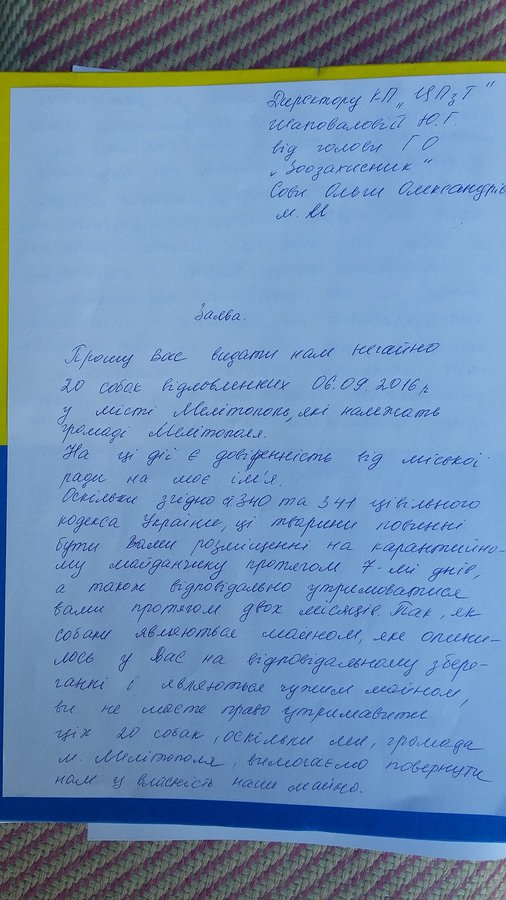 Директору КП „ЦПзТ"
Шаповаловій Ю.Г.
від голови ГО
„Зоозахисник"
Сови Ольги Олександрів
м. М
Заява.
Прошу Вас видати нам негайно
20 собак відловленних 06.09.2016р
у місті Мелітополь, які належать
громаді Мелітополя.
На ці дії є довіренність від міської
ради на моє ім'я.
Оскільки згідно ст 340 та 341 цівільного
кодекса України, ці тварини повинні
бути Вами розміщенні на карантийно-
му майданжику протягом 7-мі днів,
а також відповідально утримоватися
вами протягом двох місяців. Так, як
собаки являються майном, яке опини-
лось у Вас на відповідальному збере-
ганні і являються чужим майном,
ви не маєте право утримавати
ціх 20 собак, оскільки ми, громада
м. Мелітополя, вимогаємо повернути
нам у власність наше майно.